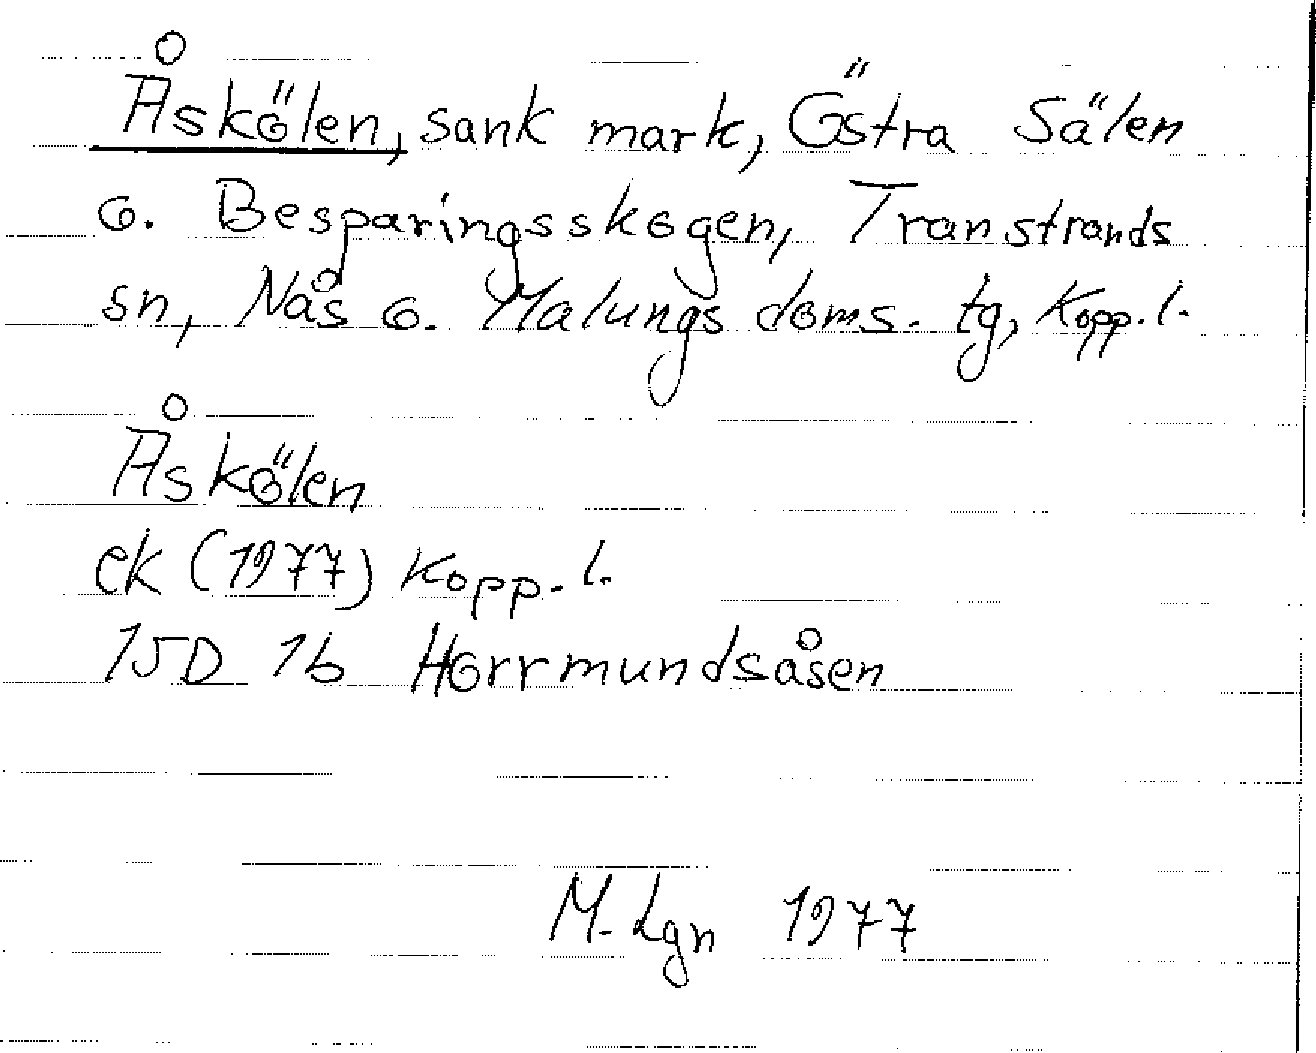 Åskölen, sank mark, Östra Sälen
o. Besparingsskogen, Transtrands
sn, Nås o. Malungs doms. tg, Kopp. l.
Åskölen
ek (1977) Kopp. l.
15D 1b Horrmundsåsen
M. Lgn 1977